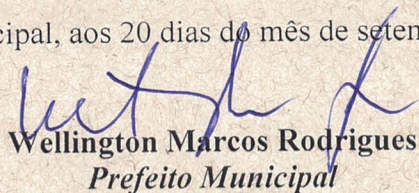 cipal, aos 20 dias do mês de
Wellington Marcos Rodrigues
Prefeito Municipal